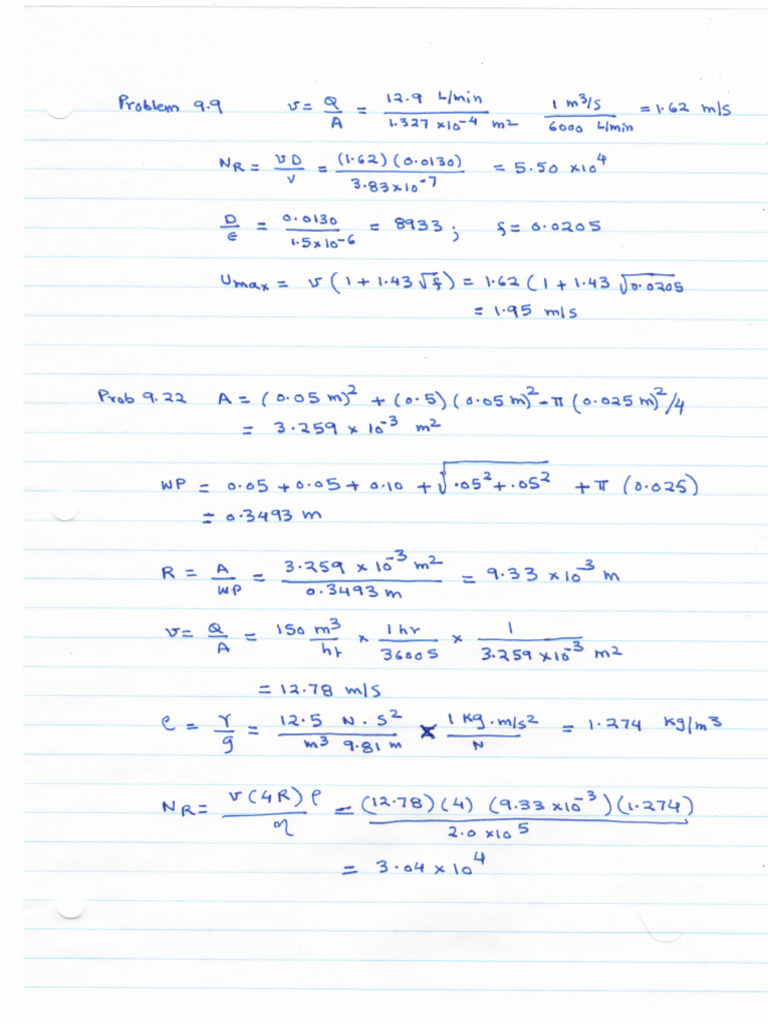 Problem 9.9 v = Q/A = 12.9 L/min / 1.327 x10⁻⁴ m² 1 m³/s / 6000 L/min = 1.62 m/s
N_R = vD/ν = (1.62)(0.0130) / 3.83x10⁻⁷ = 5.50 x10⁴
D/ϵ = 0.0130 / 1.5x10⁻⁶ = 8933 ; f = 0.0205
U_max = v (1 + 1.43 √f) = 1.62 (1 + 1.43 √0.0205
= 1.95 m/s
Prob 9.22 A = (0.05 m)² + (0.5)(0.05 m)² - π (0.025 m)²/4
= 3.259 x 10⁻³ m²
WP = 0.05 + 0.05 + 0.10 + √.05² + .05² + π (0.025)
= 0.3493 m
R = A/WP = 3.259 x 10⁻³ m² / 0.3493 m = 9.33 x 10⁻³ m
v = Q/A = 150 m³/hr x 1 hr/3600 S x 1 / 3.259 x10⁻³ m²
= 12.78 m/s
ρ = γ/g = 12.5 N.S² / m³ 9.81 m x 1 Kg.m/s² / N = 1.274 Kg/m³
N_R = v(4R) ρ / η = (12.78)(4) (9.33 x10⁻³)(1.274) / 2.0 x10⁵
= 3.04 x 10⁴